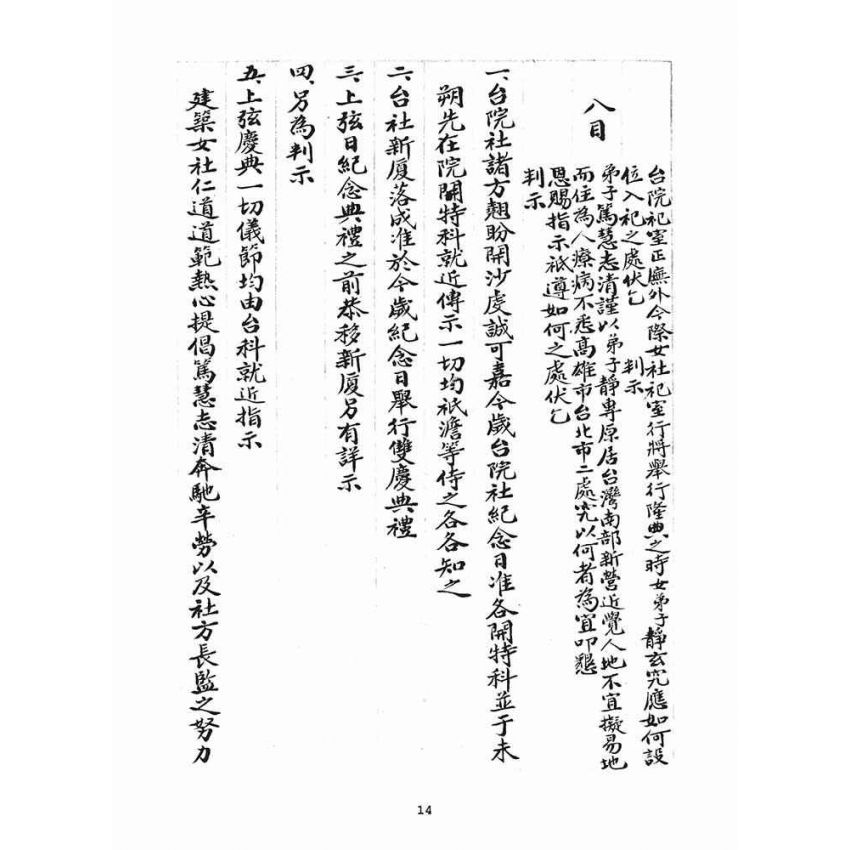 八目
台院祀室正廡外今際女社祀室行將舉行隆典之時女弟子靜玄究應如何設
位入祀之處伏乞　判示
弟子篤慧志清謹以弟子靜專原居台灣南部新營近覺人地不宜擬易地
而住為人療病不悉高雄市台北市二處究以何者為宜叩懇
恩賜指示祗遵如何之處伏乞
判示
一、台院社諸方翹盼開沙虔誠可嘉今歲台院社紀念日准各開特科並于未
朔先在院開特科就近傳示一切均祇澹等侍之各各知之
二、台社新廈落成准於今歲紀念日舉行雙慶典禮
三、上弦日紀念典禮之前恭移新廈另有詳示
四、另為判示
五、上弦慶典一切儀節均由台科就近指示
建築女社仁道道範熱心提倡篤慧志清奔馳辛勞以及社方長監之努力
14